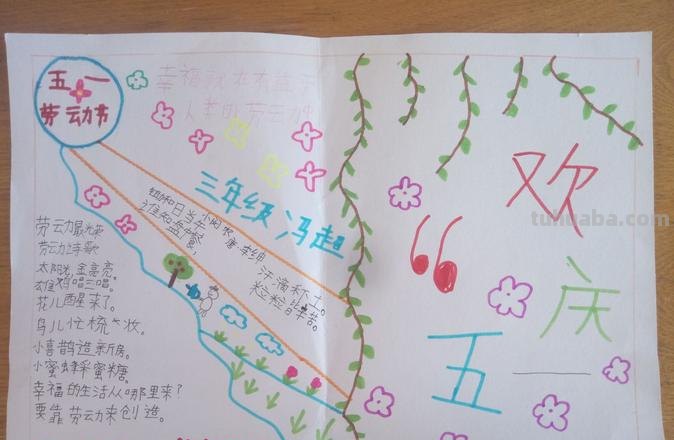 五一
劳动节
幸福就在有益于
人类的劳动中
三年级 冯超
锄禾日当午
小悯农
唐 李绅
汗滴禾下土。
谁知盘餐,
粒粒皆辛苦。
劳动最光荣
劳动诗歌
太阳光金亮亮。
雄鸡唱三唱。
花儿醒来了。
鸟儿忙梳妆。
小喜鹊造新房。
小蜜蜂采蜜糖。
幸福的生活从哪里来?
要靠劳动来创造。
欢
庆
“
五
一
tuhuaba.com